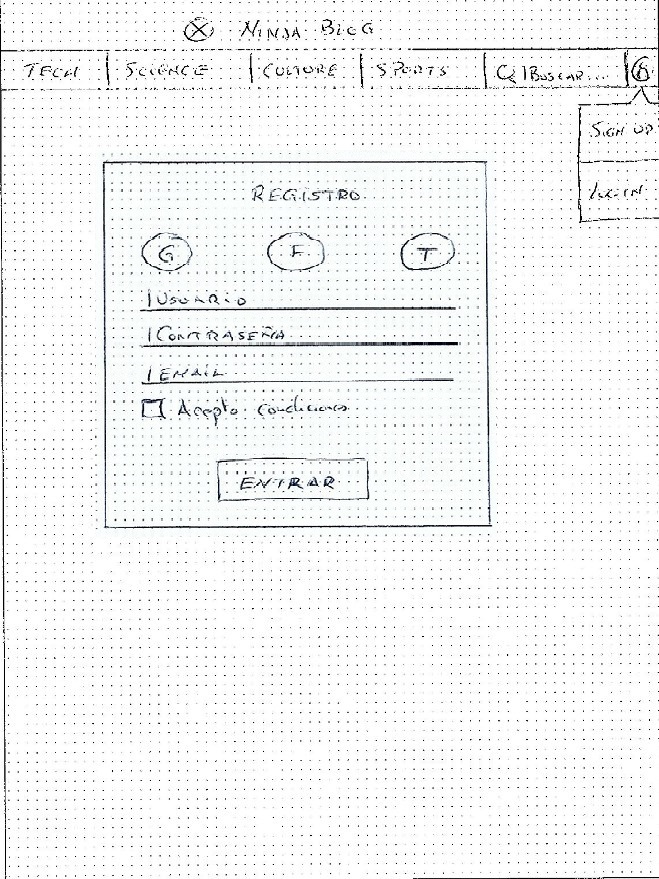 NINJA BLOG
TECH SCIENCE CULTURE SPORTS BUSCAR...
SIGN UP
LOGIN
REGISTRO
G F T
USUARIO
CONTRASEÑA
EMAIL
Acepto condiciones
ENTRAR